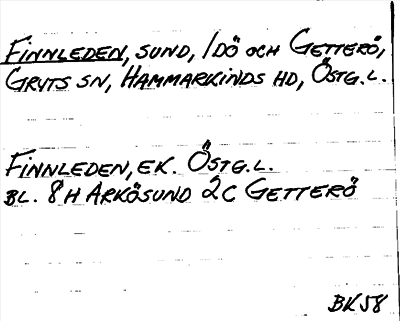 FINNLEDEN, SUND, IDÖ OCH GETTERÖ,
GRYTS SN, HAMMARKINDS HD, ÖSTG.L.
FINNLEDEN, EK. ÖSTG.L.
BL. 8H ARKÖSUND 2C GETTERÖ
BK58